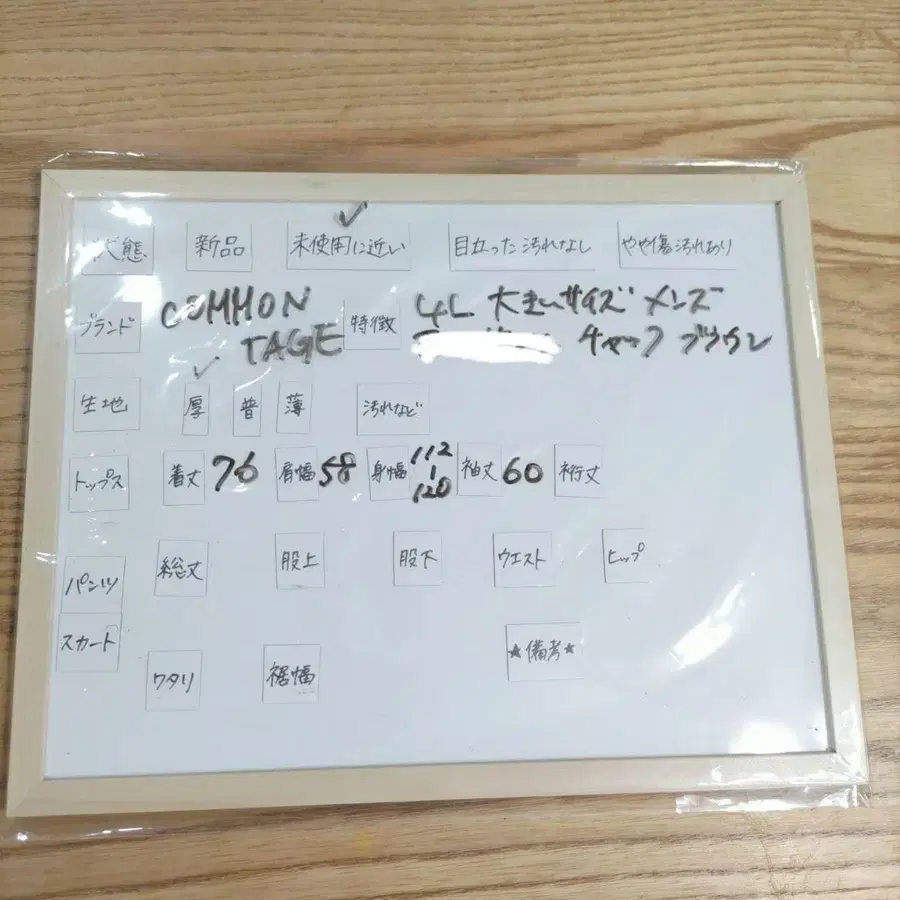 状態 新品 未使用に近い 目立った汚れなし やや傷汚れあり
ブランド COMMON 特徴 4L 大きいサイズ メンズ
TAGE チャック ブラウン
生地 厚 普 薄 汚れなど
トップス 着丈 76 肩幅 58 身幅 112 | 120 袖丈 60 裄丈
パンツ 総丈 股上 股下 ウエスト ヒップ
スカート
ワタリ 裾幅 ★備考★